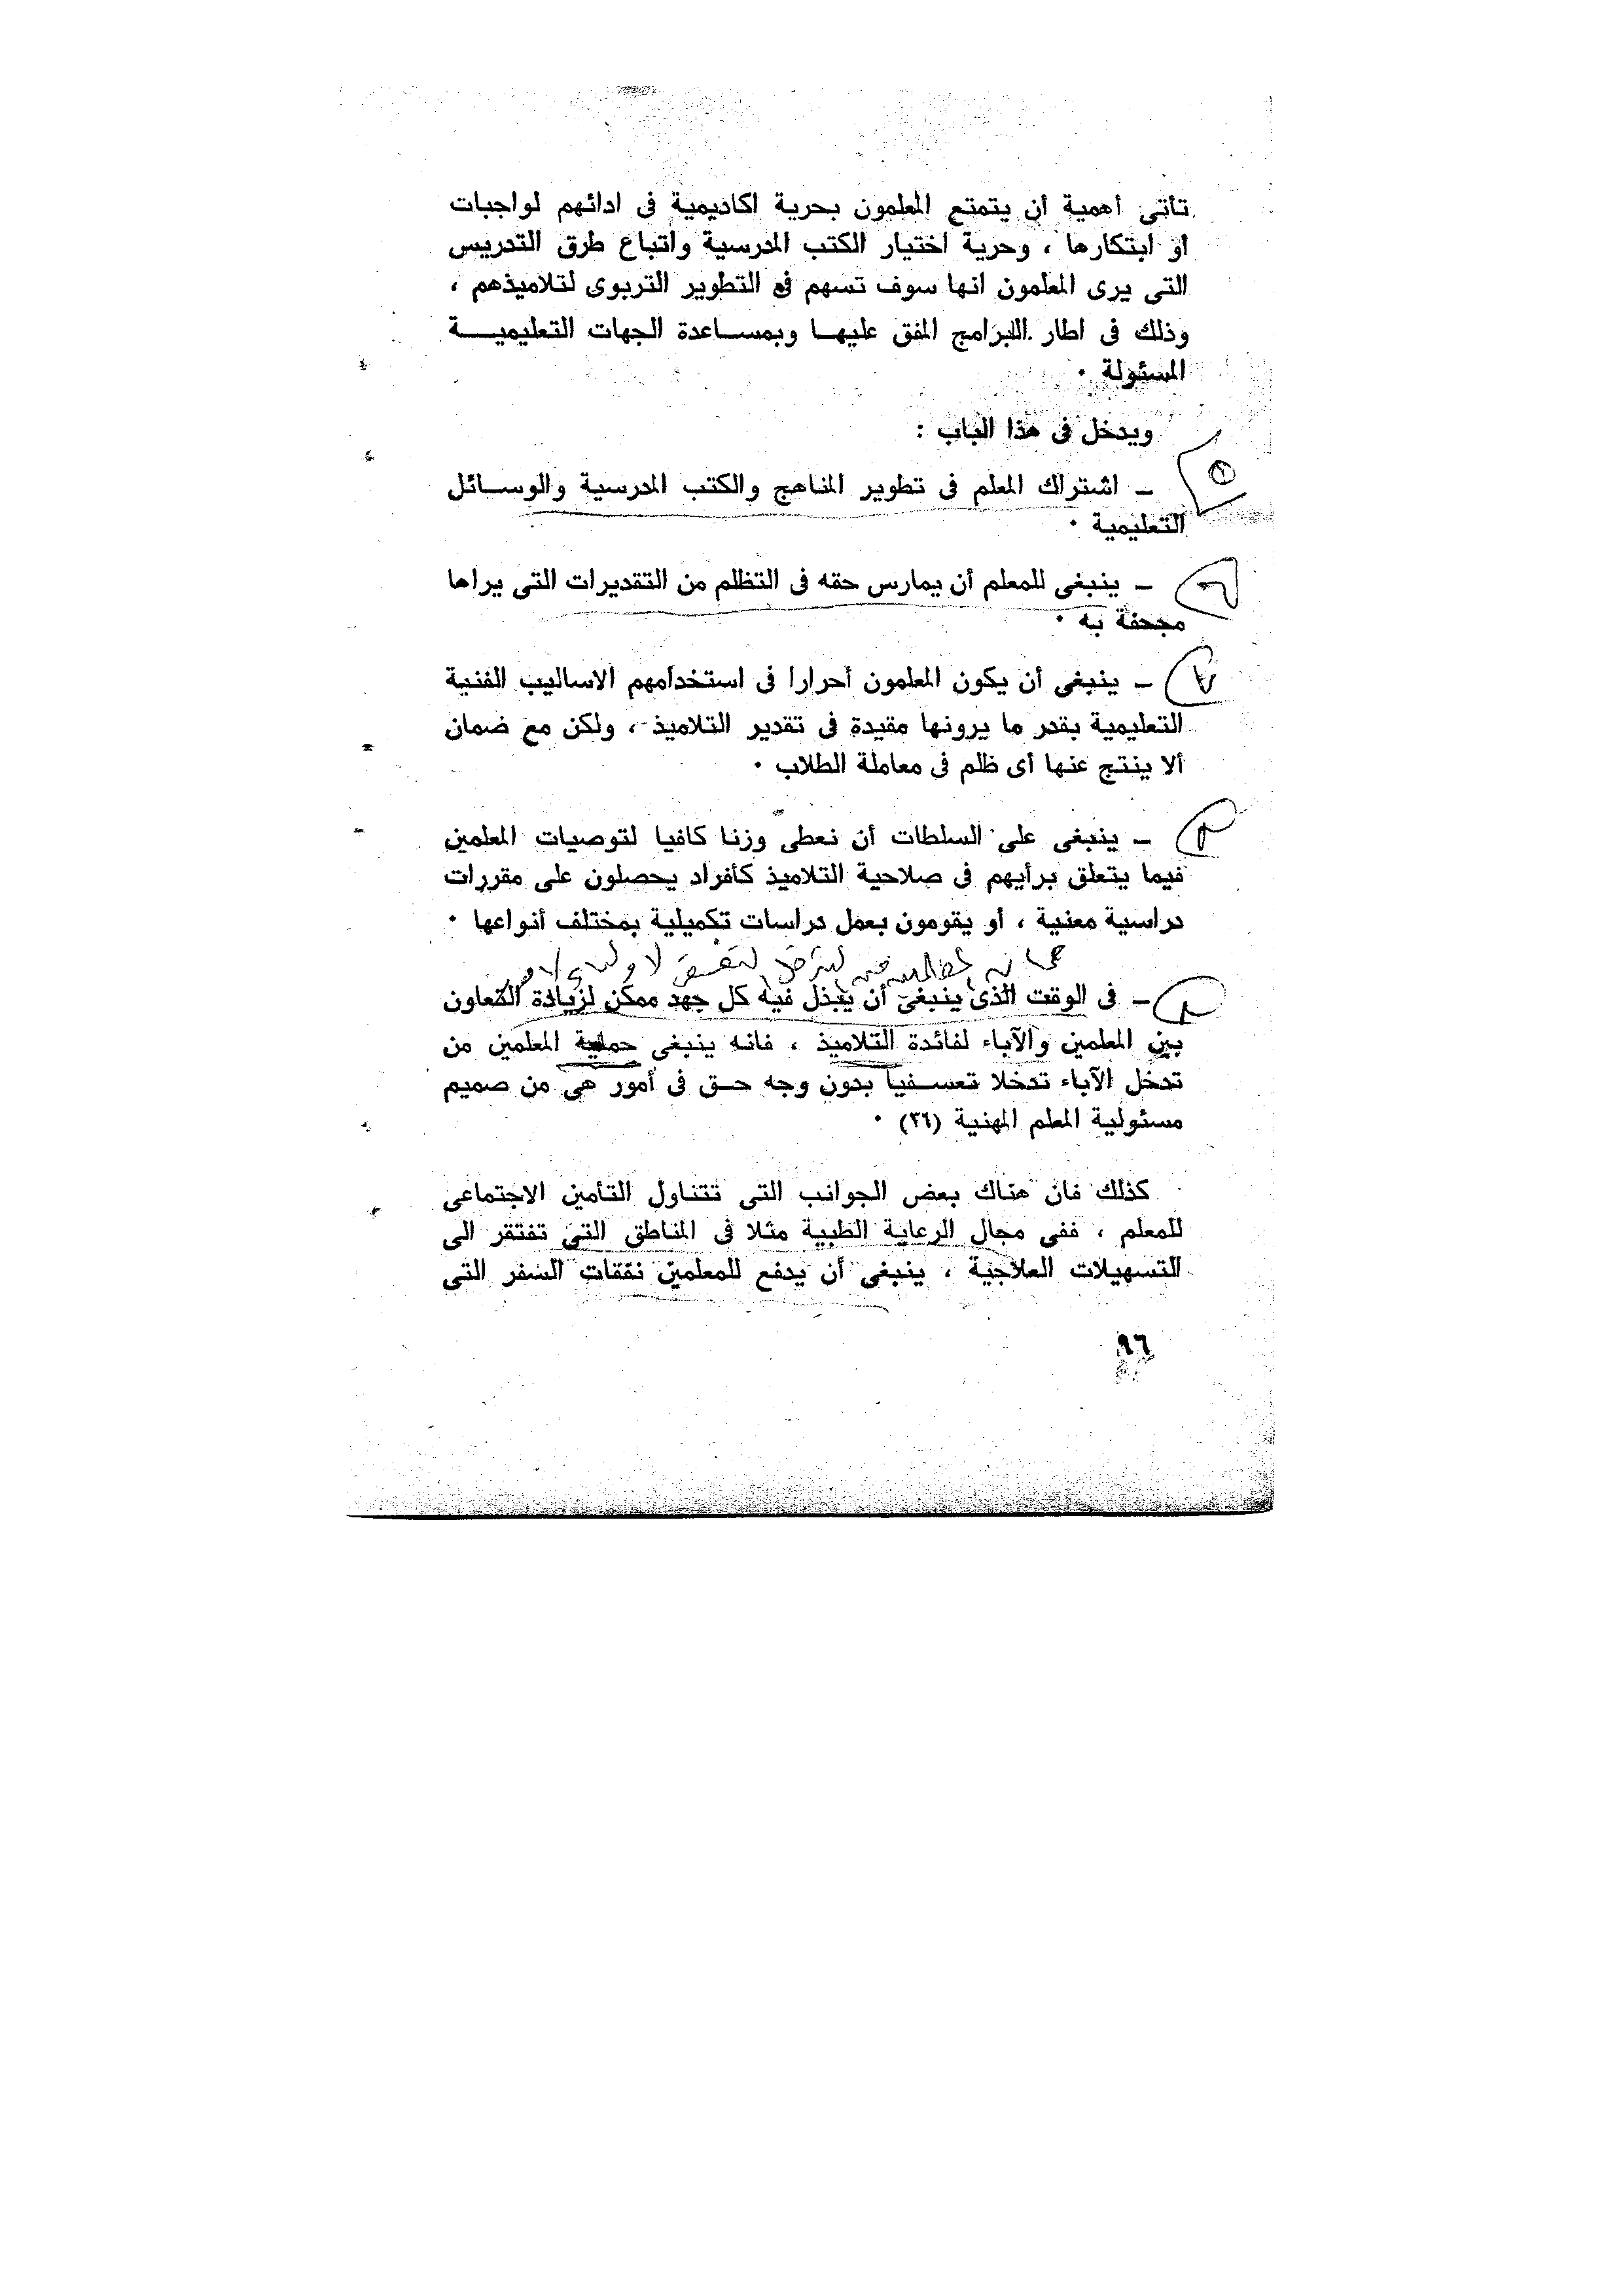 تأتى أهمية أن يتمتع المعلمون بحرية اكاديمية فى ادائهم لواجبات
او ابتكارها ، وحرية اختيار الكتب المدرسية واتباع طرق التدريس
التى يرى المعلمون انها سوف تسهم فى التطوير التربوى لتلاميذهم ،
وذلك فى اطار البرامج المفق عليهـا وبمسـاعدة الجهات التعليميـــة
المسئولة ٠
ويدخل فى هذا الباب :
ــ اشتراك المعلم فى تطوير المناهج والكتب المدرسية والوسـائل
التعليمية ٠
ــ ينبغى للمعلم أن يمارس حقه فى التظلم من التقديرات التى يراها
مجحفة به ٠
ــ ينبغى أن يكون المعلمون أحرارا فى استخدامهم الاساليب الفنية
التعليمية بقدر ما يرونها مقيدة فى تقدير التلاميذ ، ولكن مع ضمان
ألا ينتج عنها أى ظلم فى معاملة الطلاب ٠
ــ ينبغى على السلطات أن نعطى وزنا كافيا لتوصيات المعلمين
فيما يتعلق برأيهم فى صلاحية التلاميذ كأفراد يحصلون على مقررات
دراسية معنية ، أو يقومون بعمل دراسات تكميلية بمختلف أنواعها ٠
ــ فى الوقت الذى ينبغى أن يبذل فيه كل جهد ممكن لزيادة التعاون
بين المعلمين والآباء لفائدة التلاميذ ، فانه ينبغى حماية المعلمين من
تدخل الآباء تدخلا تعسـفيا بدون وجه حـق فى أمور هى من صميم
مسئولية المعلم المهنية (٣٦) ٠
كذلك فان هناك بعض الجوانب التى تتناول التأمين الاجتماعى
للمعلم ، ففى مجال الرعاية الطبية مثلا فى المناطق التى تفتقر الى
التسهيلات العلاجية ، ينبغى أن يدفع للمعلمين نفقات السفر التى
٩٦